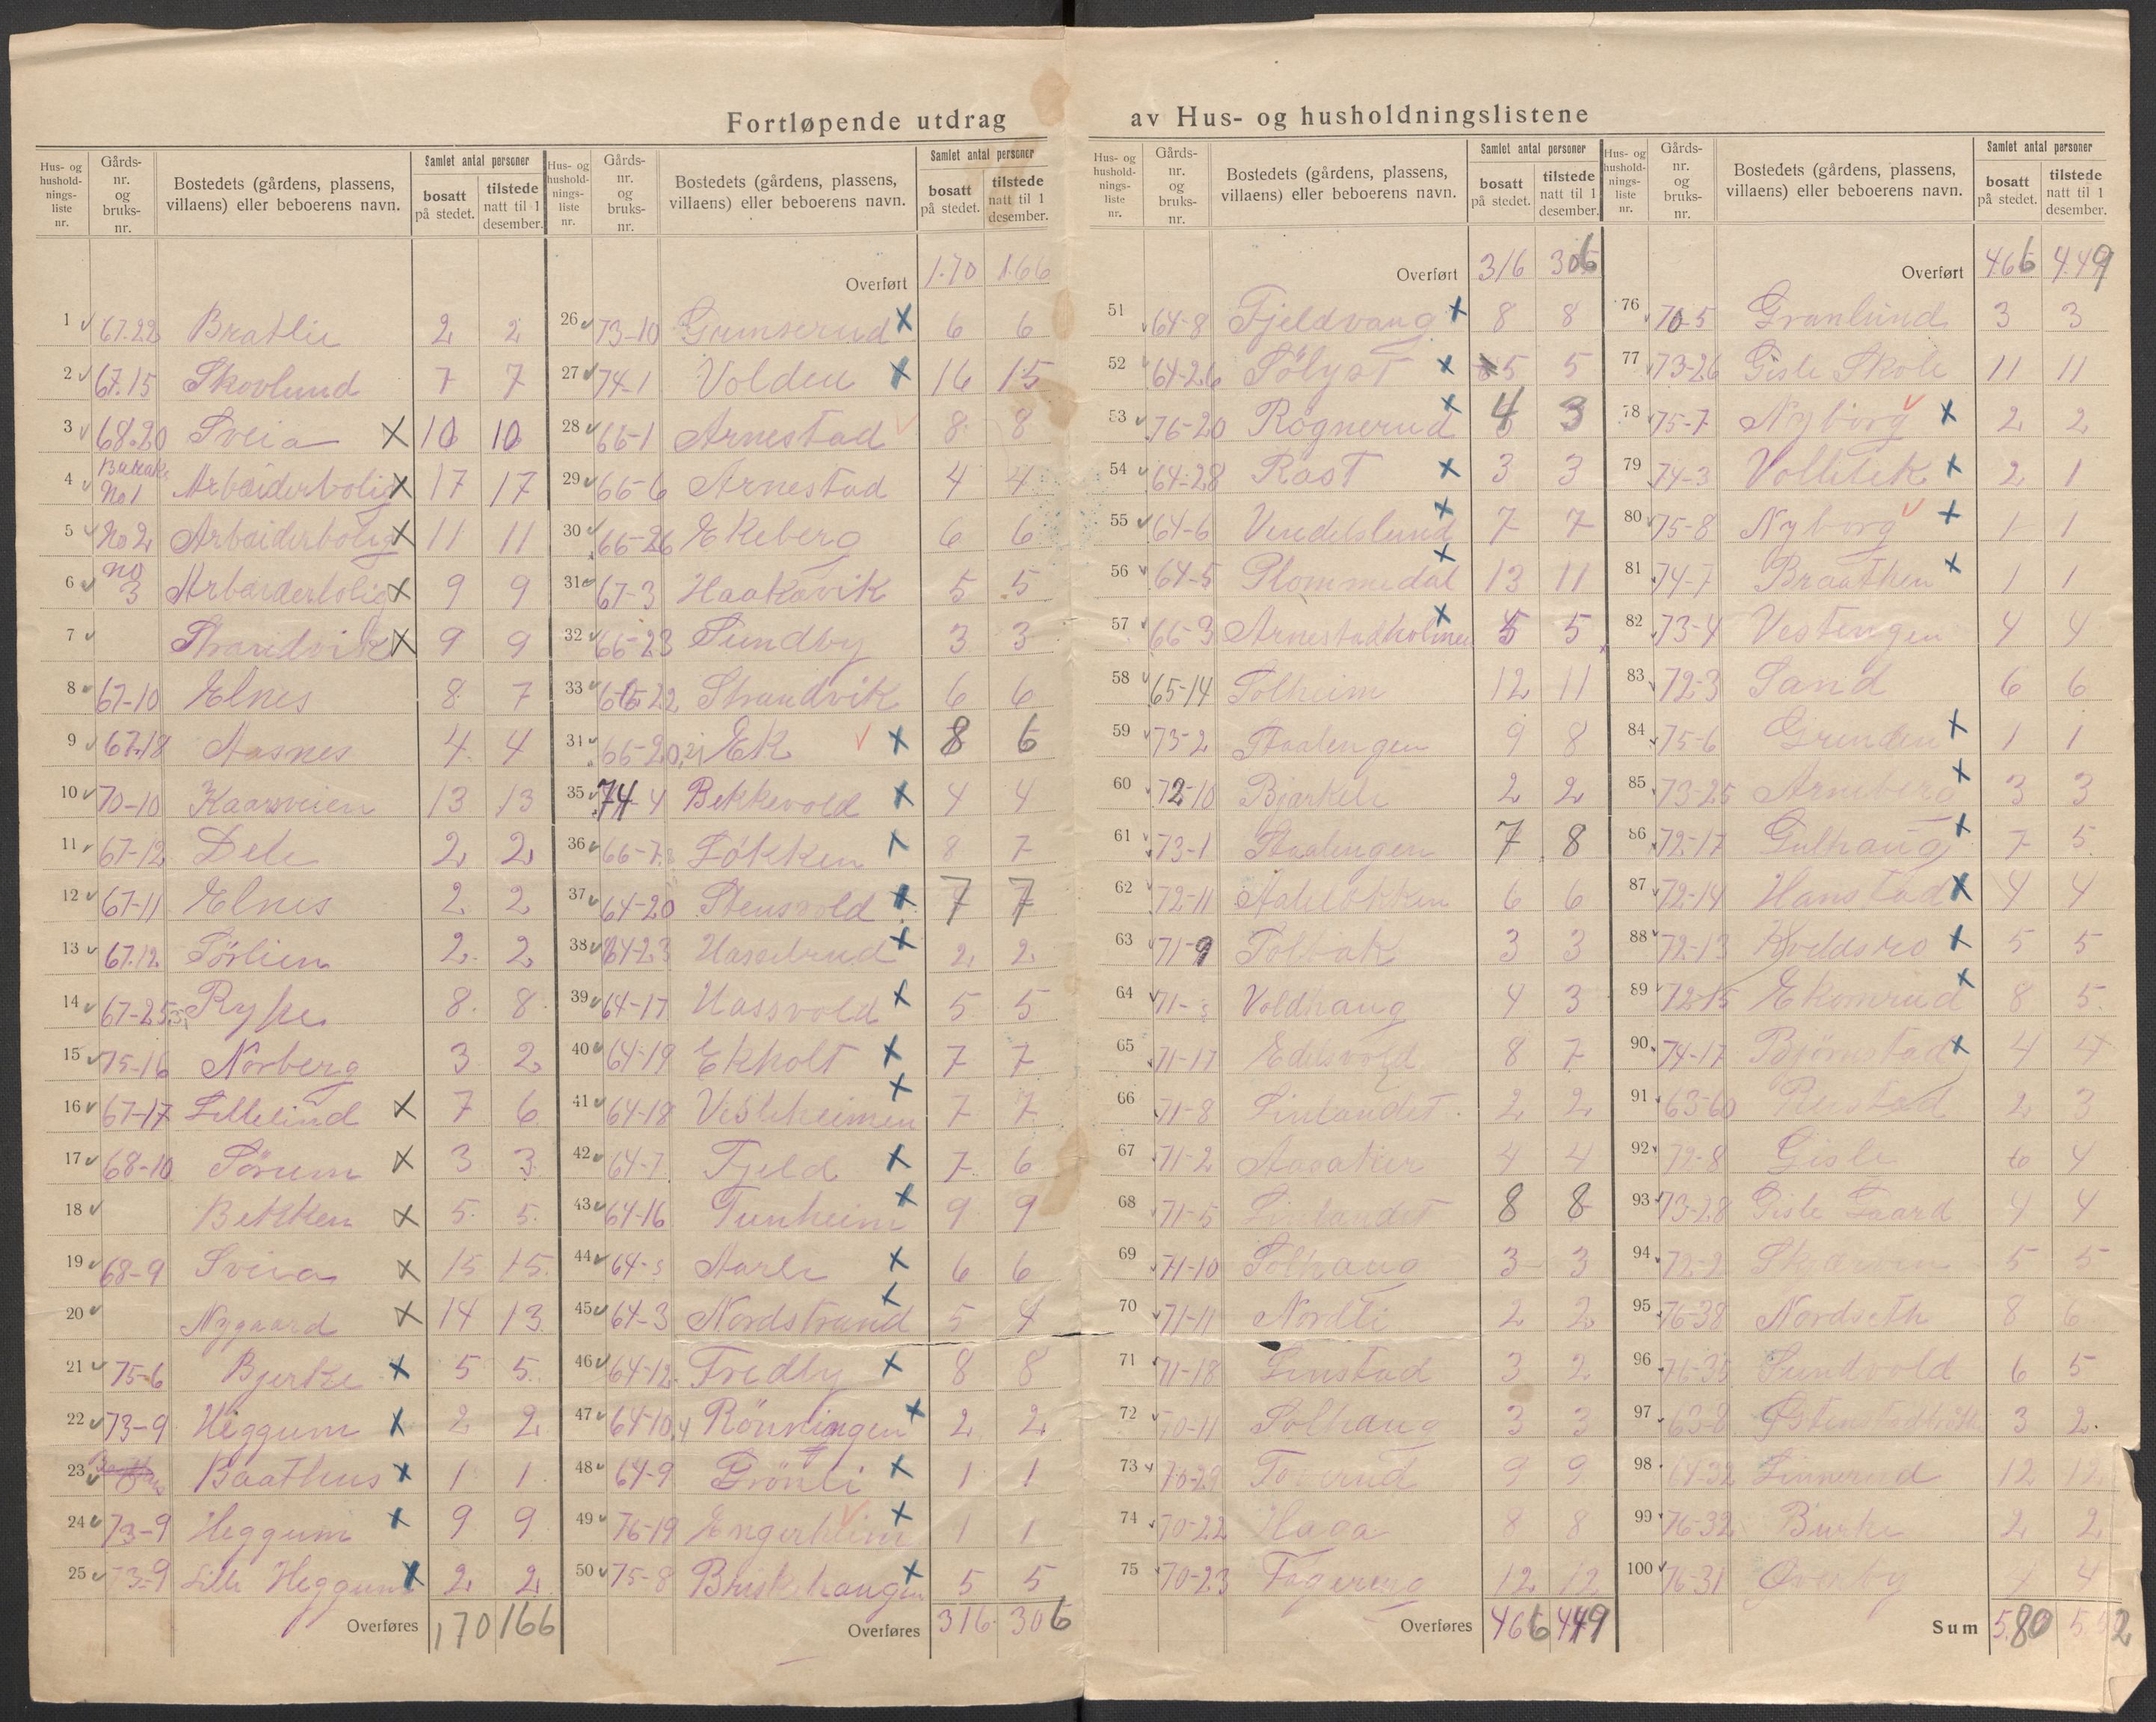 Fortløpende utdrag av Hus- og husholdningslistene
Hus- og husholdnings-liste nr. Gårds-nr. og bruks-nr. Bostedets (gårdens, plassens, villaens) eller beboerens navn. Samlet antal personer bosatt på stedet. tilstede natt til 1 desember.
1 67.22 Bratlie 2 2
2 67.15 Skovlund 7 7
3 68.20 Sveia X 10 10
4 Barak No 1 Arbeiderbolig X 17 17
5 No 2 Arbeiderbolig X 11 11
6 No 3 Arbeiderbolig X 9 9
7 Strandvik X 9 9
8 67-10 Elnes 8 7
9 67.18 Aasnes 4 4
10 70-10 Kaarsveien 13 13
11 67-12 Dele 2 2
12 67-11 Elnes 2 2
13 67.12 Sörlien 2 2
14 67-25 Rypе 8 8
15 75-16 Norberg 3 2
16 67-17 Lillelind X 7 6
17 68-10 Sörum X 3 3
18 Bekken X 5 5
19 68-9 Sveia X 15 15
20 Nygaard X 14 13
21 75-6 Bjerke X 5 5
22 73-9 Heggum X 2 2
23 Baathus X 1 1
24 73-9 Heggum X 9 9
25 73-9 Lille Heggum X 2 2
Overføres 170 166
Hus- og husholdnings-liste nr. Gårds-nr. og bruks-nr. Bostedets (gårdens, plassens, villaens) eller beboerens navn. Samlet antal personer bosatt på stedet. tilstede natt til 1 desember.
Overført 170 166
26 73-10 Gumserud X 6 6
27 74-1 Volden X 16 15
28 66-1 Arnestad 8 8
29 66-6 Arnestad 4 4
30 66-26 Ekeberg 6 6
31 67-3 Haakavik 5 5
32 66-23 Sundby 3 3
33 66-22 Strandvik 6 6
31 66-20,21 Ek X 8 6
35 74-4 Bekkevold X 4 4
36 66-7 Løkken 8 7
37 64-20 Stensvold X 7 7
38 64-23 Hasselbrud X 2 2
39 64-17 Hassvold X 5 5
40 64-19 Ekholt X 7 7
41 64-18 Vesleheimen X 7 7
42 64-7 Fjeld X 7 6
43 64-16 Tunheim X 9 9
44 64- Aarli X 6 6
45 64-3 Nordstrand X 5 4
46 64-12 Fredly X 8 8
47 64-10,4 Rönningen X 2 2
48 64-9 Grönli X 1 1
49 76-19 Engerheim X 1 1
50 75-8 Briskehaugen X 5 5
Overføres 316 306
Hus- og husholdnings-liste nr. Gårds-nr. og bruks-nr. Bostedets (gårdens, plassens, villaens) eller beboerens navn. Samlet antal personer bosatt på stedet. tilstede natt til 1 desember.
Overført 316 306
51 64-8 Fjeldvang X 8 8
52 64-26 Sölyst X 5 5
53 76-20 Rögnerud X 4 3
54 64-28 Rast X 3 3
55 64-6 Vendelslund X 7 7
56 64-5 Plommedal X 13 11
57 66-3 Arnestadholmen X 5 5
58 65-14 Solheim 12 11
59 73-2 Staalengen 9 8
60 72-10 Bjerkeli 2 2
61 73-1 Staalengen 7 8
62 72-11 Aalelökken 6 6
63 71-9 Solbak 3 3
64 71- Voldhaug 4 3
65 71-17 Edesvold 8 7
66 71-8 Linlandet 2 2
67 71-2 Aaraker 4 4
68 71-5 Linlandet 8 8
69 71-10 Solhaug 3 3
70 71-11 Nordli 2 2
71 71-18 Linstad 3 2
72 70-11 Solhaug 3 3
73 9 9
74 70-22 Haga 8 8
75 70-23 Fagereng 12 12
Overføres 466 449
Hus- og husholdnings-liste nr. Gårds-nr. og bruks-nr. Bostedets (gårdens, plassens, villaens) eller beboerens navn. Samlet antal personer bosatt på stedet. tilstede natt til 1 desember.
Overført 466 449
76 70-5 Granlund 3 3
77 73-26 Gisle Skole 11 11
78 75-7 Nyborg X 2 2
79 74-3 Volletek X 2 1
80 75-8 Nyborg X 1 1
81 74-7 Braathen X 1 1
82 73-4 Vestengen 4 4
83 72-3 Sand 6 6
84 75-6 Grinden X 1 1
85 73-25 Arneberg X 3 3
86 72-17 Gulhaug X 7 5
87 72-14 Hanstad X 4 4
88 72-13 Kveldsro X 5 5
89 72-15 Ekornrud X 8 5
90 74-17 Björnstad X 4 4
91 63-60 2 3
92 72-8 Gisle 6 4
93 73-28 Gisle Gaard 4 4
94 72-2 5 5
95 76-38 Nordseth 8 6
96 76-35 Sundvold 6 5
97 63-8 3 2
98 64-32 Linnerud 12 12
99 76-32 Birke 2 2
100 76-31 Øverby 4
Sum 580 552